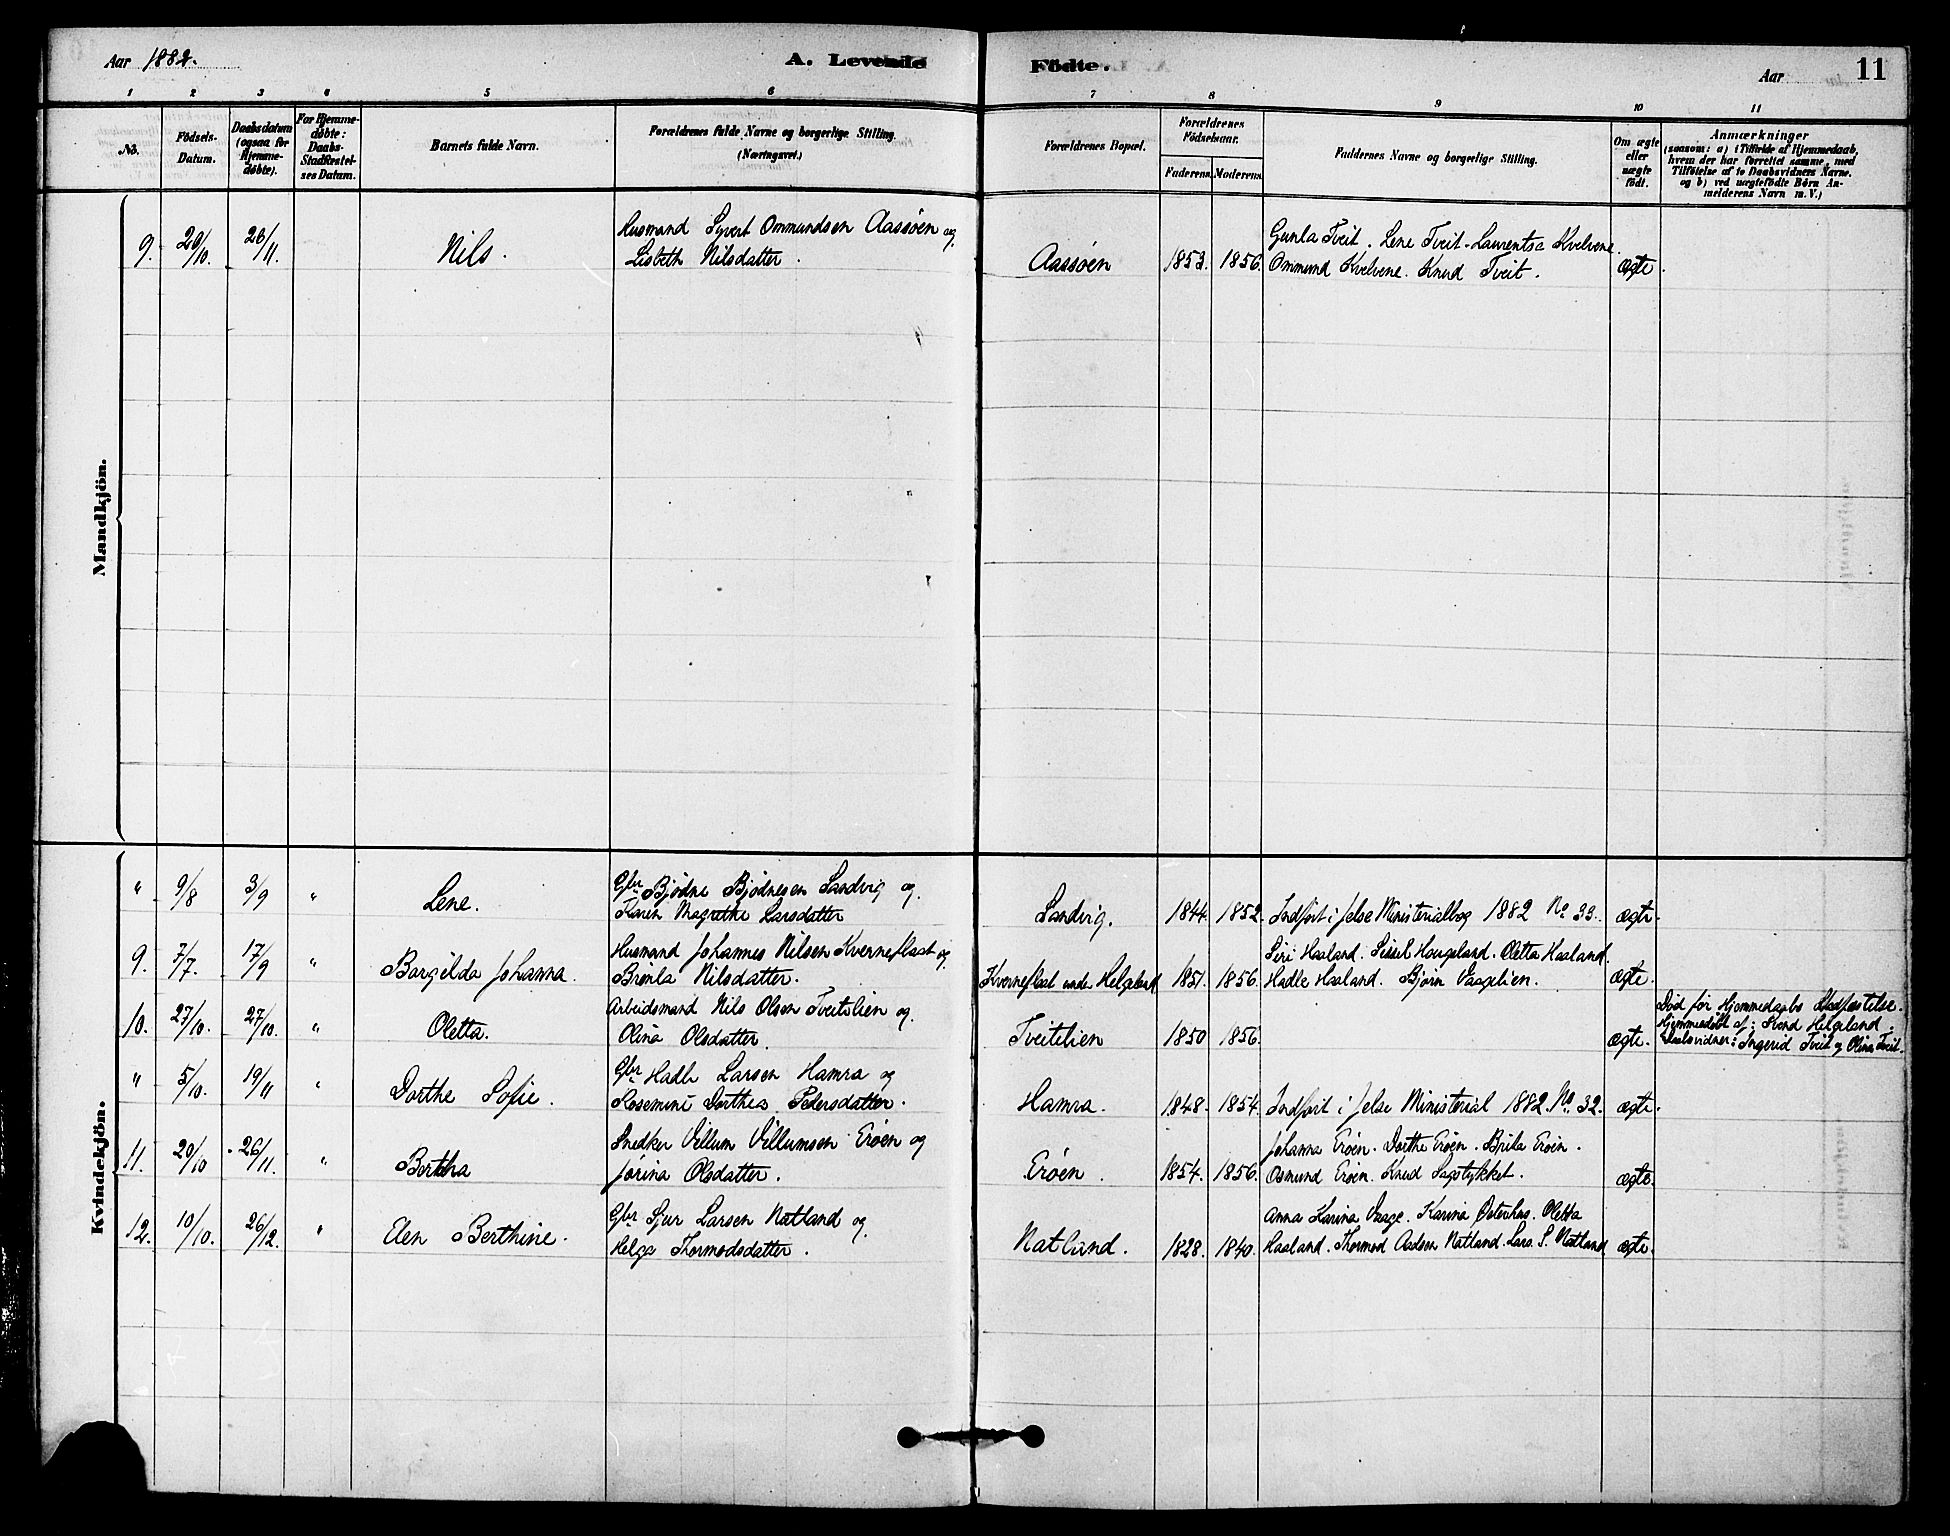 Aar 1882.
A. Levende Födte.
Aar
11
1 2 3 4 5 6 7 8 9 10 11
No.
Födsels-Datum.
Daabsdatum (ogsaa for Hjemme-döbte).
For Hjemme-döbte: Daabs-Stadfæstel-ses Datum.
Barnets fulde Navn.
Forældrenes fulde Navne og borgerlige Stilling. (Næringsvei.)
Forældrenes Bopæl.
Forældrenes Födselsaar.
Faderens. Moderens.
Faddernes Navne og borgerlige Stilling.
Om ægte eller uægte födt.
Anmærkninger
(saasom: a) i Tilfælde af Hjemmedaab,
hvem der har forrettet samme, med
Tilföielse af to Daabsvidners Navne.
og b) ved uægtefödte Börn An-
melderens Navn m.V.)
Mandkjön.
9. 20/10. 26/11. Nils.
Husmand Syvert Ommundsen Aassøen og
Lisbeth Nilsdatter.
Aassöen 1853. 1856.
Gunla Tveit. Lene Tveit. Laurentsa Kvelvene.
Ommund Kvelvene. Knud Tveit.
ægte.
Kvindekjön.
" 9/8 3/9 " Lene.
Gbr Bjødne Bjødnesen Sandvig og
Karen Magrethe Larsdatter
Sandvig. 1844. 1852.
Indført i Jelse Ministerialbog 1882 No 33.
ægte.
9. 7/7. 17/9 " Bargilda Johanna.
Husmand Johannes Nilsen Kverneflaat og
Brønla Nilsdatter.
Kverneflaat under Helgeland 1851. 1856.
Siri Haaland. Sissel Haugeland. Oletta Haaland.
Hadle Haaland. Bjørn Vaagelien.
ægte.
10. 27/10. 27/10. " Oletta.
Arbeidsmand Nils Olsen Tveitelien og
Olina Olsdatter.
Tveitelien 1850 1856.
ægte.
Død før Hjemmedaabs Stadfæstelse.
Hjemmedøbt af: Svend Helgeland.
Daabsvidner: Ingerid Tveit og Olina Tveit.
" 5/10. 19/11 " Dorthe Sofie.
Gbr Hadle Larsen Hamra og
Rosemine Dorthea Pedersdatter.
Hamra. 1848. 1854.
Indført i Jelse Ministerial 1882. No. 32.
ægte.
11. 20/10 26/11. " Bertha
Snedker Villum Villumsen Erøen og
Jorina Olsdatter.
Erøen. 1854. 1856.
Johanna Erøen. Dorthe Erøen. Brita Erøen.
Osmund Erøen. Knud Sagstykket.
ægte.
12. 10/10. 26/12. " Elen Berthine.
Gbr Sjur Larsen Natland og
Helga Thormodsdatter.
Natland. 1828. 1840.
Anna Karina Vaage. Karina Østerhus. Oletta
Haaland. Thormod Aadsen Natland. Lars S. Natland
ægte.